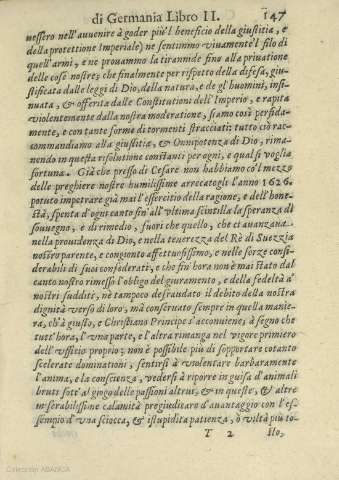 di Germania Libro II. 147
uessero nell'auuenire à goder più 'l beneficio della giustitia, e
della protettione Imperiale) ne sentimmo viuamente 'l filo di
quell'armi, e ne prouammo la tirannide fino alla priuatione
delle cose nostre; che finalmente per rispetto della difesa, giu-
stificata dalle leggi di Dio, della natura, e de gl'huomini, insi-
nuata, & offerita dalle Constitutioni dell'Imperio, e rapita
violentemente dalla nostra moderatione, siamo così perfida-
mente, e con tante forme di tormenti stracciati: tutto ciò rac-
commandiamo alla giustitia, & Onnipotenza di Dio, rima-
nendo in questa risolutione constanti per ogni, e qual si voglia
fortuna. Già che presso di Cesare non habbiamo co'l mezzo
delle preghiere nostre humilissime arrecategli l'anno 1626.
potuto impetrare già mai l'essercitio della ragione, e dell'hone-
stà, spenta d'ogni canto fin'all'vltima scintilla la speranza di
souuegno, e di rimedio, fuori che quello, che ci auanza
nella prouidenza di Dio, e nella tenerezza del Rè di Suezzia
nostro parente, e congionto affettuosissimo, e nelle forze consi-
derabili di suoi confederati, e che fin hora non è mai stato dal
canto nostro rimesso l'obligo del giuramento, e della fedeltà a'
nostri sudditi, nè tampoco defraudato il debito della nostra
dignità verso di loro, mà conseruato sempre in quella manie-
ra, ch'à giusto, e Christiano Principe s'acconuiene; à segno che
tutt'hora, l'vna parte, e l'altra rimanga nel vigore primiero
dell'vffitio proprio; non è possibile più di sopportare cotanto
scelerate dominationi, sentirsi à violentare barbaramente
l'anima, e la conscienza, vedersi à riporre in guisa d'animali
bruti sott'al giogo delle passioni altrui, & in queste, & altre
miserabilissime calamità pregiudicare d'auantaggio con l'es-
sempio d'vna sciocca, & istupidita patienza, ò viltà più to-
T 2 sto,
Colección ABANCA